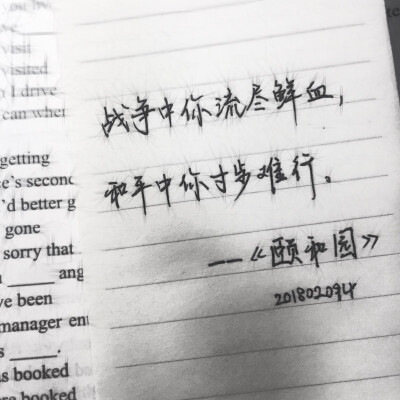 you
visit
visited
I drive
can
getting
e's second
'd better g
gone
sorry that
____ ang
ve been
manager
s ____.
s booked
re booked
战争中你流尽鲜血，
和平中你寸步难行。
——《颐和园》